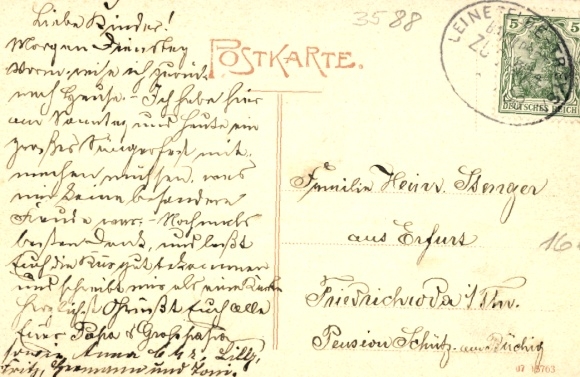 Liebe Kinder!
Morgen Dienstag
Vorm. reise ich zurück
nach Hause. - Ich habe hier
am Sonntag und heute ein
großes Sängerfest mit
machen müssen, was
mir keine besondere
Freude war. - Nochmals
besten Dank, und laßt
Euch die Kur gut bekommen
und schreibt mir als eine Karte
herzlichst Grüßt Euch alle
Euer Papa & Großpapa
sowie Anna
Fritz, Hermann und Toni.
3588
POSTKARTE.
LEINEFELDE-TREYSA
ZUG
5 5
DEUTSCHES REICH
Familie Heinr. Stenger
aus Erfurt
Friedrichroda i/Thr.
Pension Schütz.
16
07 15763